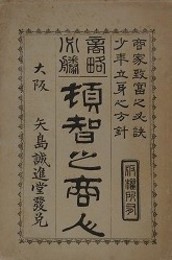 商家致富之必訣
少年立身之方針
版權所有
商略必勝
頓智之商人
大阪 矢島誠進堂發兌